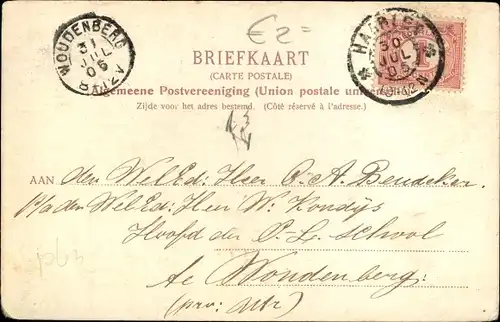 € 2=
WOUDENBERG
31
JUL
05
8-12V
HAARLEM
30
JUL
05
12N
BRIEFKAART
(CARTE POSTALE)
Algemeene Postvereeniging (Union postale universelle)
Zijde voor het adres bestemd. (Côté réservé à l'adresse.)
AAN den WelEd: Heer O. A. Beudeker.
P/a den WelEd: Heer W. Kondijs
Hoofd der P-L. School
te Woudenberg.
(prov: Utr)